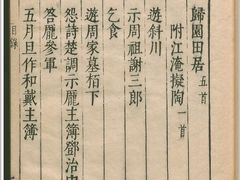 歸園田居五首
附江淹擬陶一首
遊斜川
示周祖謝三郎
乞食
遊周家墓柏下
怨詩楚調示龐主簿鄧治中
答龐參軍
五月旦作和戴主簿
目錄